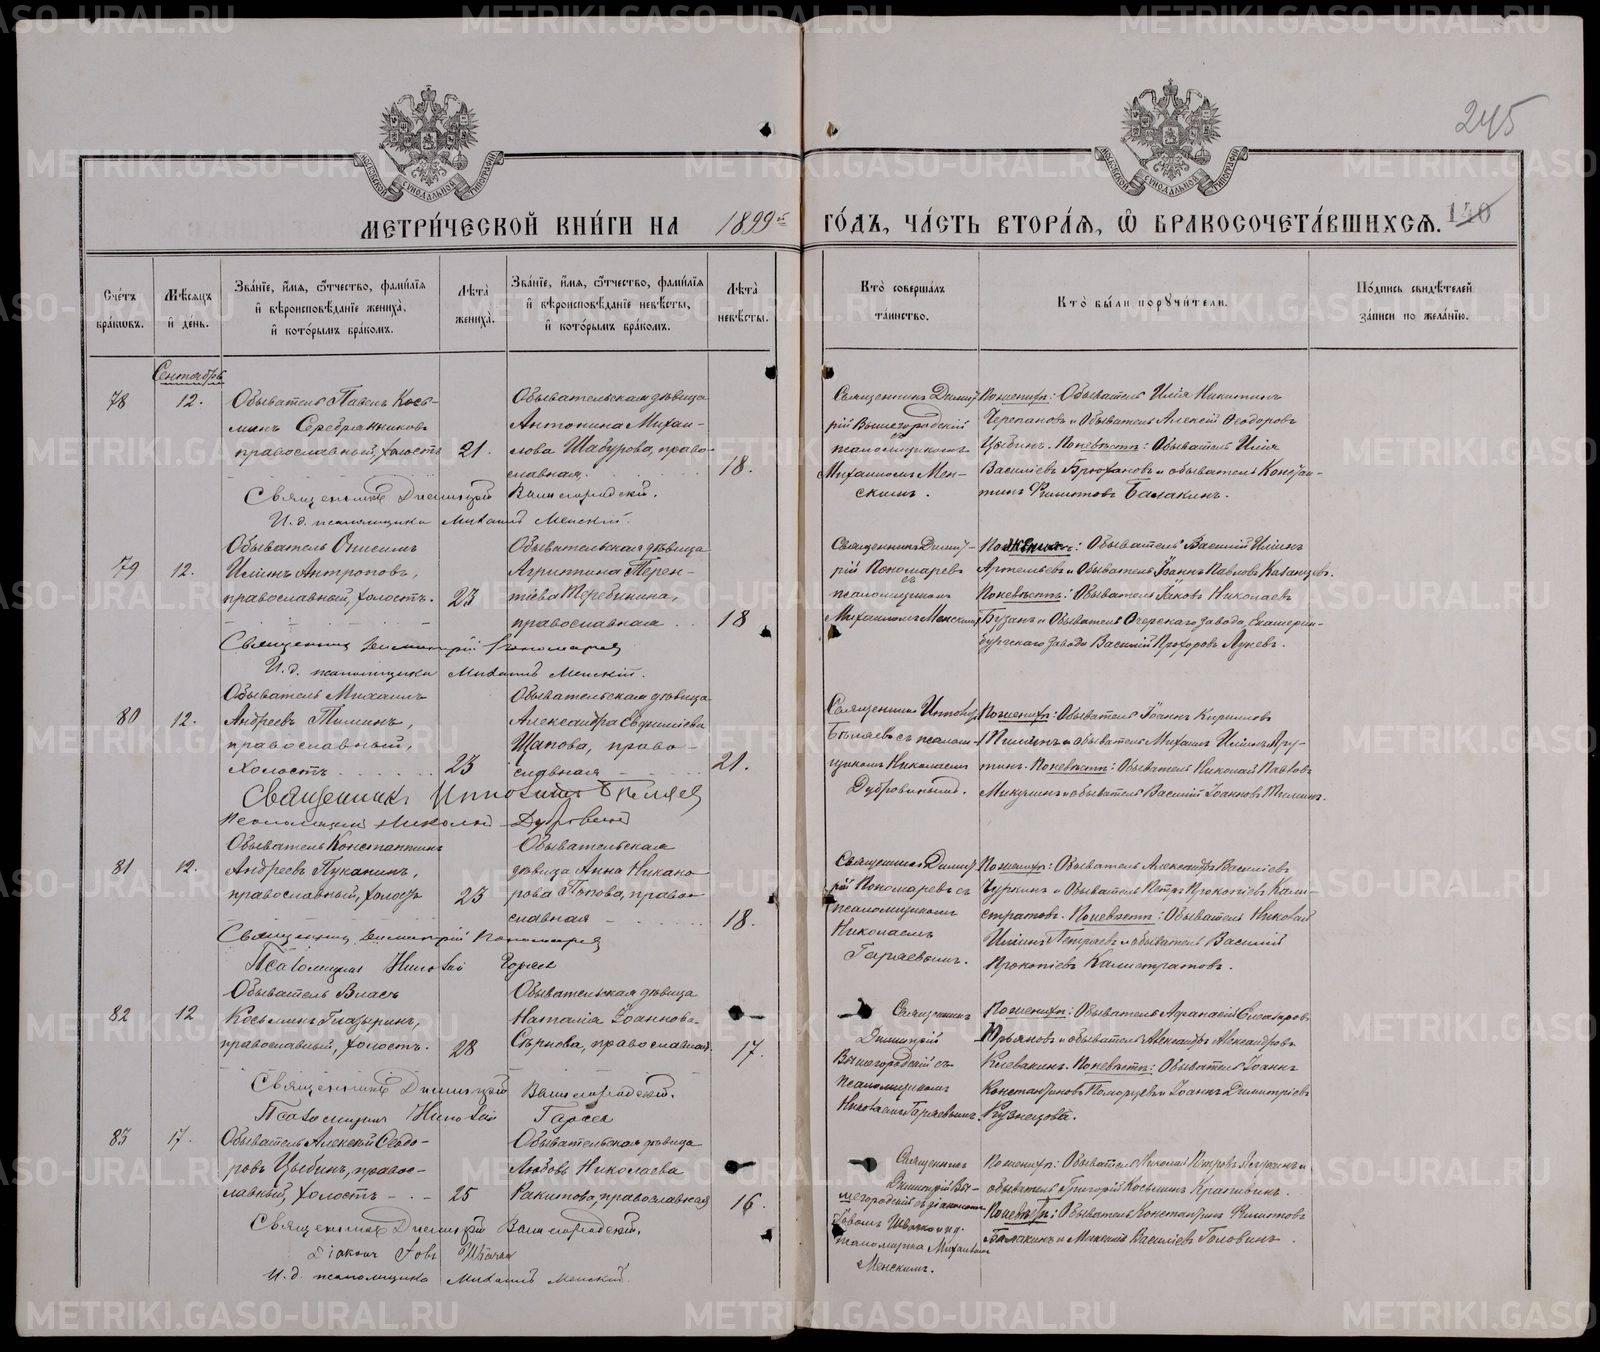 245
МЕТРИ́ЧЕСКОЙ КНИ́ГИ НА 1899й ГО́ДЪ, ЧА́СТЬ ВТОРА́Я, Ѿ БРАКОСОЧЕТА́ВШИХСЯ.
140
Сче́тъ бра́ковъ.
Мѣ́сяцъ и де́нь.
Зва́нїе, и́мя, ѻ҆́тчество, фами́лїя и вѣроисповѣ́данїе жениха̀, и кото́рымъ бра́комъ.
Лѣ́та жениха̀.
Зва́нїе, и́мя, ѻ҆́тчество, фами́лїя и вѣроисповѣ́данїе невѣ́сты, и кото́рымъ бра́комъ.
Лѣ́та невѣ́сты.
Кто̀ соверша́лъ та́инство.
Кто̀ бы́ли поручи́тели.
По́дпись свидѣ́телей за́писи по жела́нїю.
Сентябрь
78
12.
Обыватель Павелъ Козь-
минъ Серебрянниковъ
православный, холостъ
21.
Обывательская дѣвица
Антонина Михаи-
лова Шабурова, право-
славная.
18.
Священникъ Димит-
рій Вышегородскій
съ
псаломщикомъ
Михаиломъ Мен-
скимъ.
По женихѣ: Обыватель Илія Никитинъ
Черепановъ и Обыватель Алексій Ѳеодоровъ
Цыбинъ. По невѣстѣ: Обыватель Илія
Василіевъ Брюхановъ и обыватель Констан-
тинъ Филитовъ Балакинъ.
Священникъ Димитрій Вышегородскій.
И. д. псаломщика Михаилъ Менскій.
79
12.
Обыватель Онисимъ
Илiинъ Антроповъ,
православный, холостъ.
23
Обывательская дѣвица
Агриппина Терен-
тіева Теребинина,
православная
18
Священникъ Димит-
рій Пономаревъ
съ
псаломщикомъ
Михаиломъ Менскимъ
По женихѣ: Обыватель Василій Илiинъ
Артемьевъ и Обыватель Іоаннъ Павловъ Казанцевъ.
По невѣстѣ: Обыватель Іаковъ Николаевъ
Бузанъ и Обыватель Очерскаго завода, Екатерин-
бургскаго завода Василій Прохоровъ Лужевъ.
Священникъ Димитрій Пономаревъ
И. д. псаломщика Михаилъ Менскій.
80
12.
Обыватель Михаилъ
Андреевъ Тиминъ,
православный,
холостъ
23
Обывательская дѣвица
Александра Евфиміева
Щапова, право-
славная
21.
Священникъ Ипполитъ
Бѣляевъ съ псалом-
щикомъ Николаемъ
Дубровинымъ.
По женихѣ: Обыватель Іоаннъ Кирилловъ
Пилинъ и обыватель Михаилъ Илiинъ Яру-
тинъ. По невѣстѣ: Обыватель Николай Павловъ
Микушинъ и обыватель Василій Іоанновъ Тиминъ.
Священникъ Ипполитъ Бѣляевъ
Псаломщикъ Николай Дубровинъ
81
12.
Обыватель Константинъ
Андреевъ Пуканинъ,
православный, холостъ
23
Обывательская
дѣвица Анна Никано-
рова Попова, право-
славная
18.
Священникъ Димит-
рій Пономаревъ съ
псаломщикомъ
Николаемъ
Гаряевымъ.
По женихѣ: Обыватель Александръ Василіевъ
Чуркинъ и Обыватель Петръ Прокопіевъ Кали-
стратовъ. По невѣстѣ: Обыватель Николай
Илiинъ Петряевъ и обыватель Василій
Прокопіевъ Калистратовъ.
Священникъ Димитрій Пономаревъ
Псаломщикъ Николай Гаряевъ
82
12
Обыватель Власъ
Косьминъ Глазыринъ,
православный, холостъ.
28
Обывательская дѣвица
Наталія Іоаннова
Сѣркова, православная.
17.
Священникъ
Димитрій
Вышегородскій съ
псаломщикомъ
Николаемъ Гаряевымъ.
По женихѣ: Обыватель Аѳанасій Елеазаровъ
Юрьяновъ и обыватель Александръ Александровъ
Клевакинъ. По невѣстѣ: Обыватель Іоаннъ
Константиновъ Поморцевъ и Іоаннъ Димитріевъ
Кузнецовъ.
Священникъ Димитрій Вышегородскій.
Псаломщикъ Николай Гаряевъ
83
17.
Обыватель Алексій Ѳеодо-
ровъ Цыбинъ, правос-
лавный, холостъ
25
Обывательская дѣвица
Любовь Николаева
Ракитова, православная
16.
Священникъ
Димитрій Вы-
шегородскій съ діакономъ
Іовомъ и и. д.
псаломщика Михаиломъ
Менскимъ.
По женихѣ: Обыватель Николай Петровъ и
обыватель Григорій Косьминъ Крапивинъ.
По невѣстѣ: Обыватель Константинъ Филитовъ
Балакинъ и Василіевъ Головинъ.
Священникъ Димитрій Вышегородскій.
Діаконъ Іовъ
И. д. псаломщика Михаилъ Менскій.
METRIKI.GASO-URAL.RU